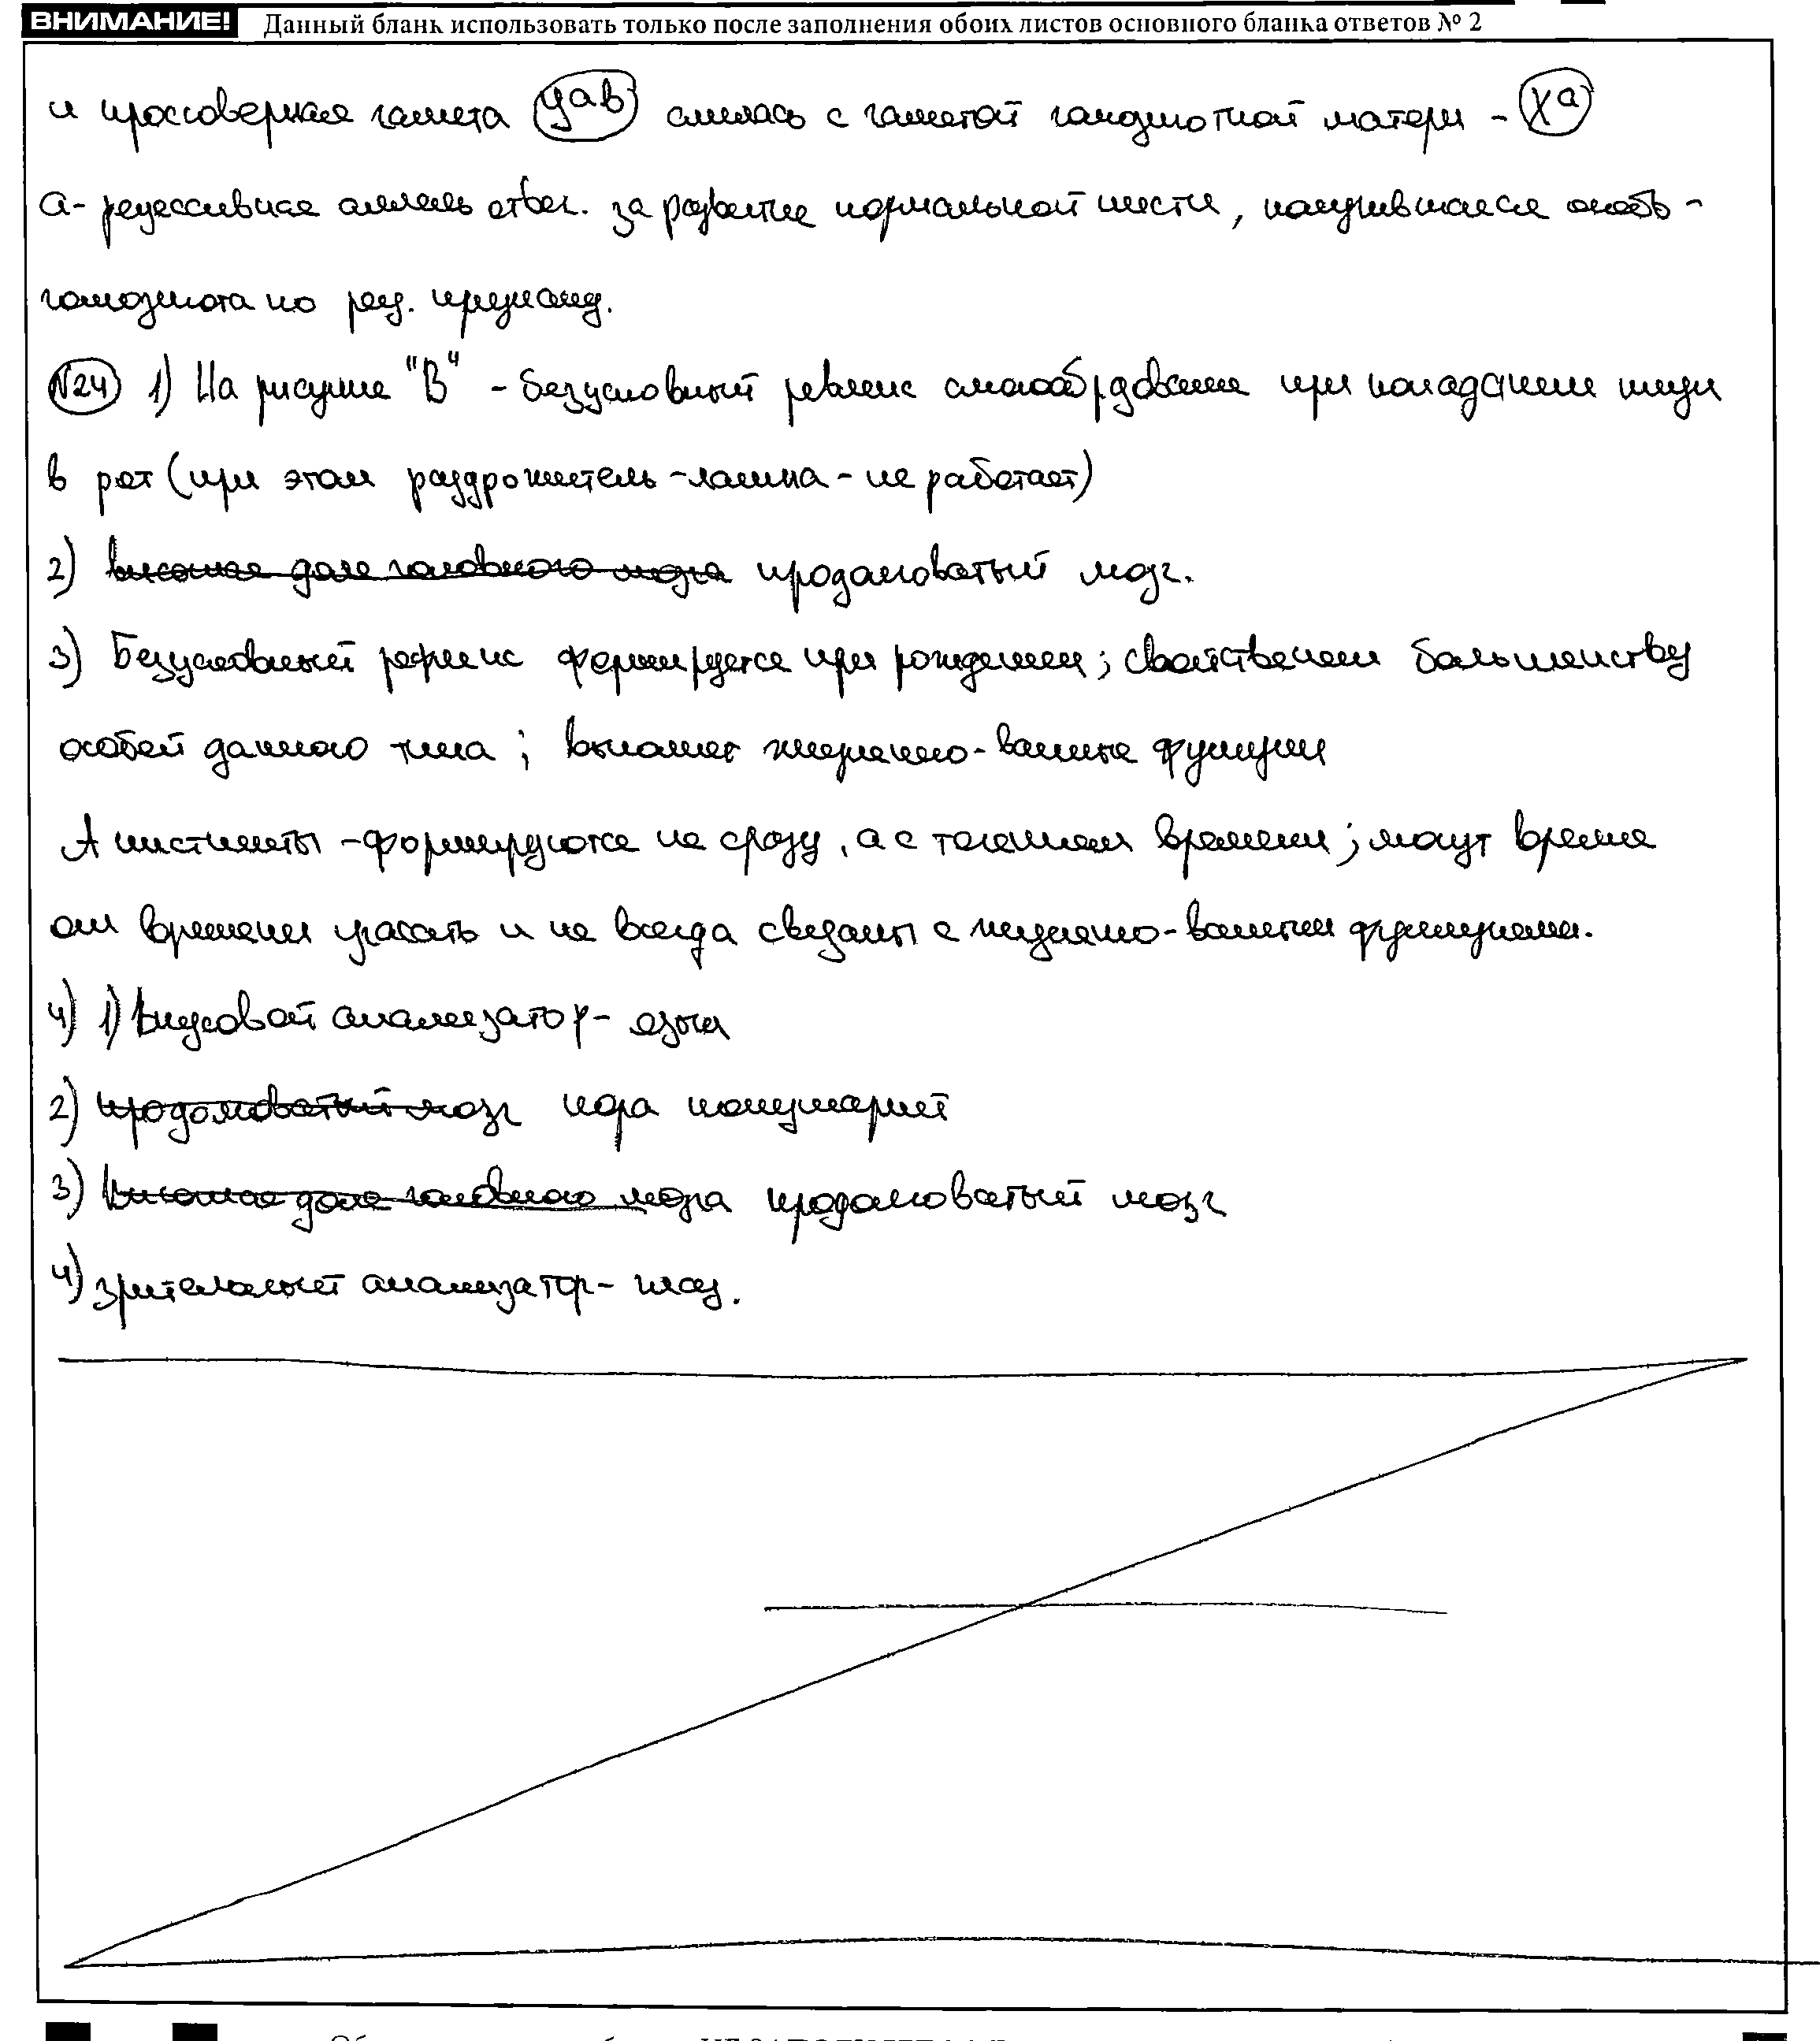 ВНИМАНИЕ! Данный бланк использовать только после заполнения обоих листов основного бланка ответов № 2
и кроссоверная гамета Yab слилась с гаметой гомозиготной матери - Xa
a - рецессивная аллель отвеч. за развитие нормальной шести, получившаяся особь -
гомозигота по рец. признакд.
N24 1) На рисунке "В" - безусловный рефлекс слюнообрдование при попадании пищи
в рот (при этом раздрожитель - лампа - не работает)
2) височная доля головного мозга продолговатый мозг.
3) Безусловный рефлекс формируется при рождении; свойственен большинству
особей данного типа; включает жизненно-важные функции
А инстинкты - формируются не сразу, а с течением времени; могут время
от времени угасать и не всегда связаны с жизненно-важными функциями.
4) 1) Вкусовой анализатор - язык
2) продолговатый мозг кора полушарий
3) височная доля головного мозга продолговатый мозг
4) зрительный анализатор - глаз.